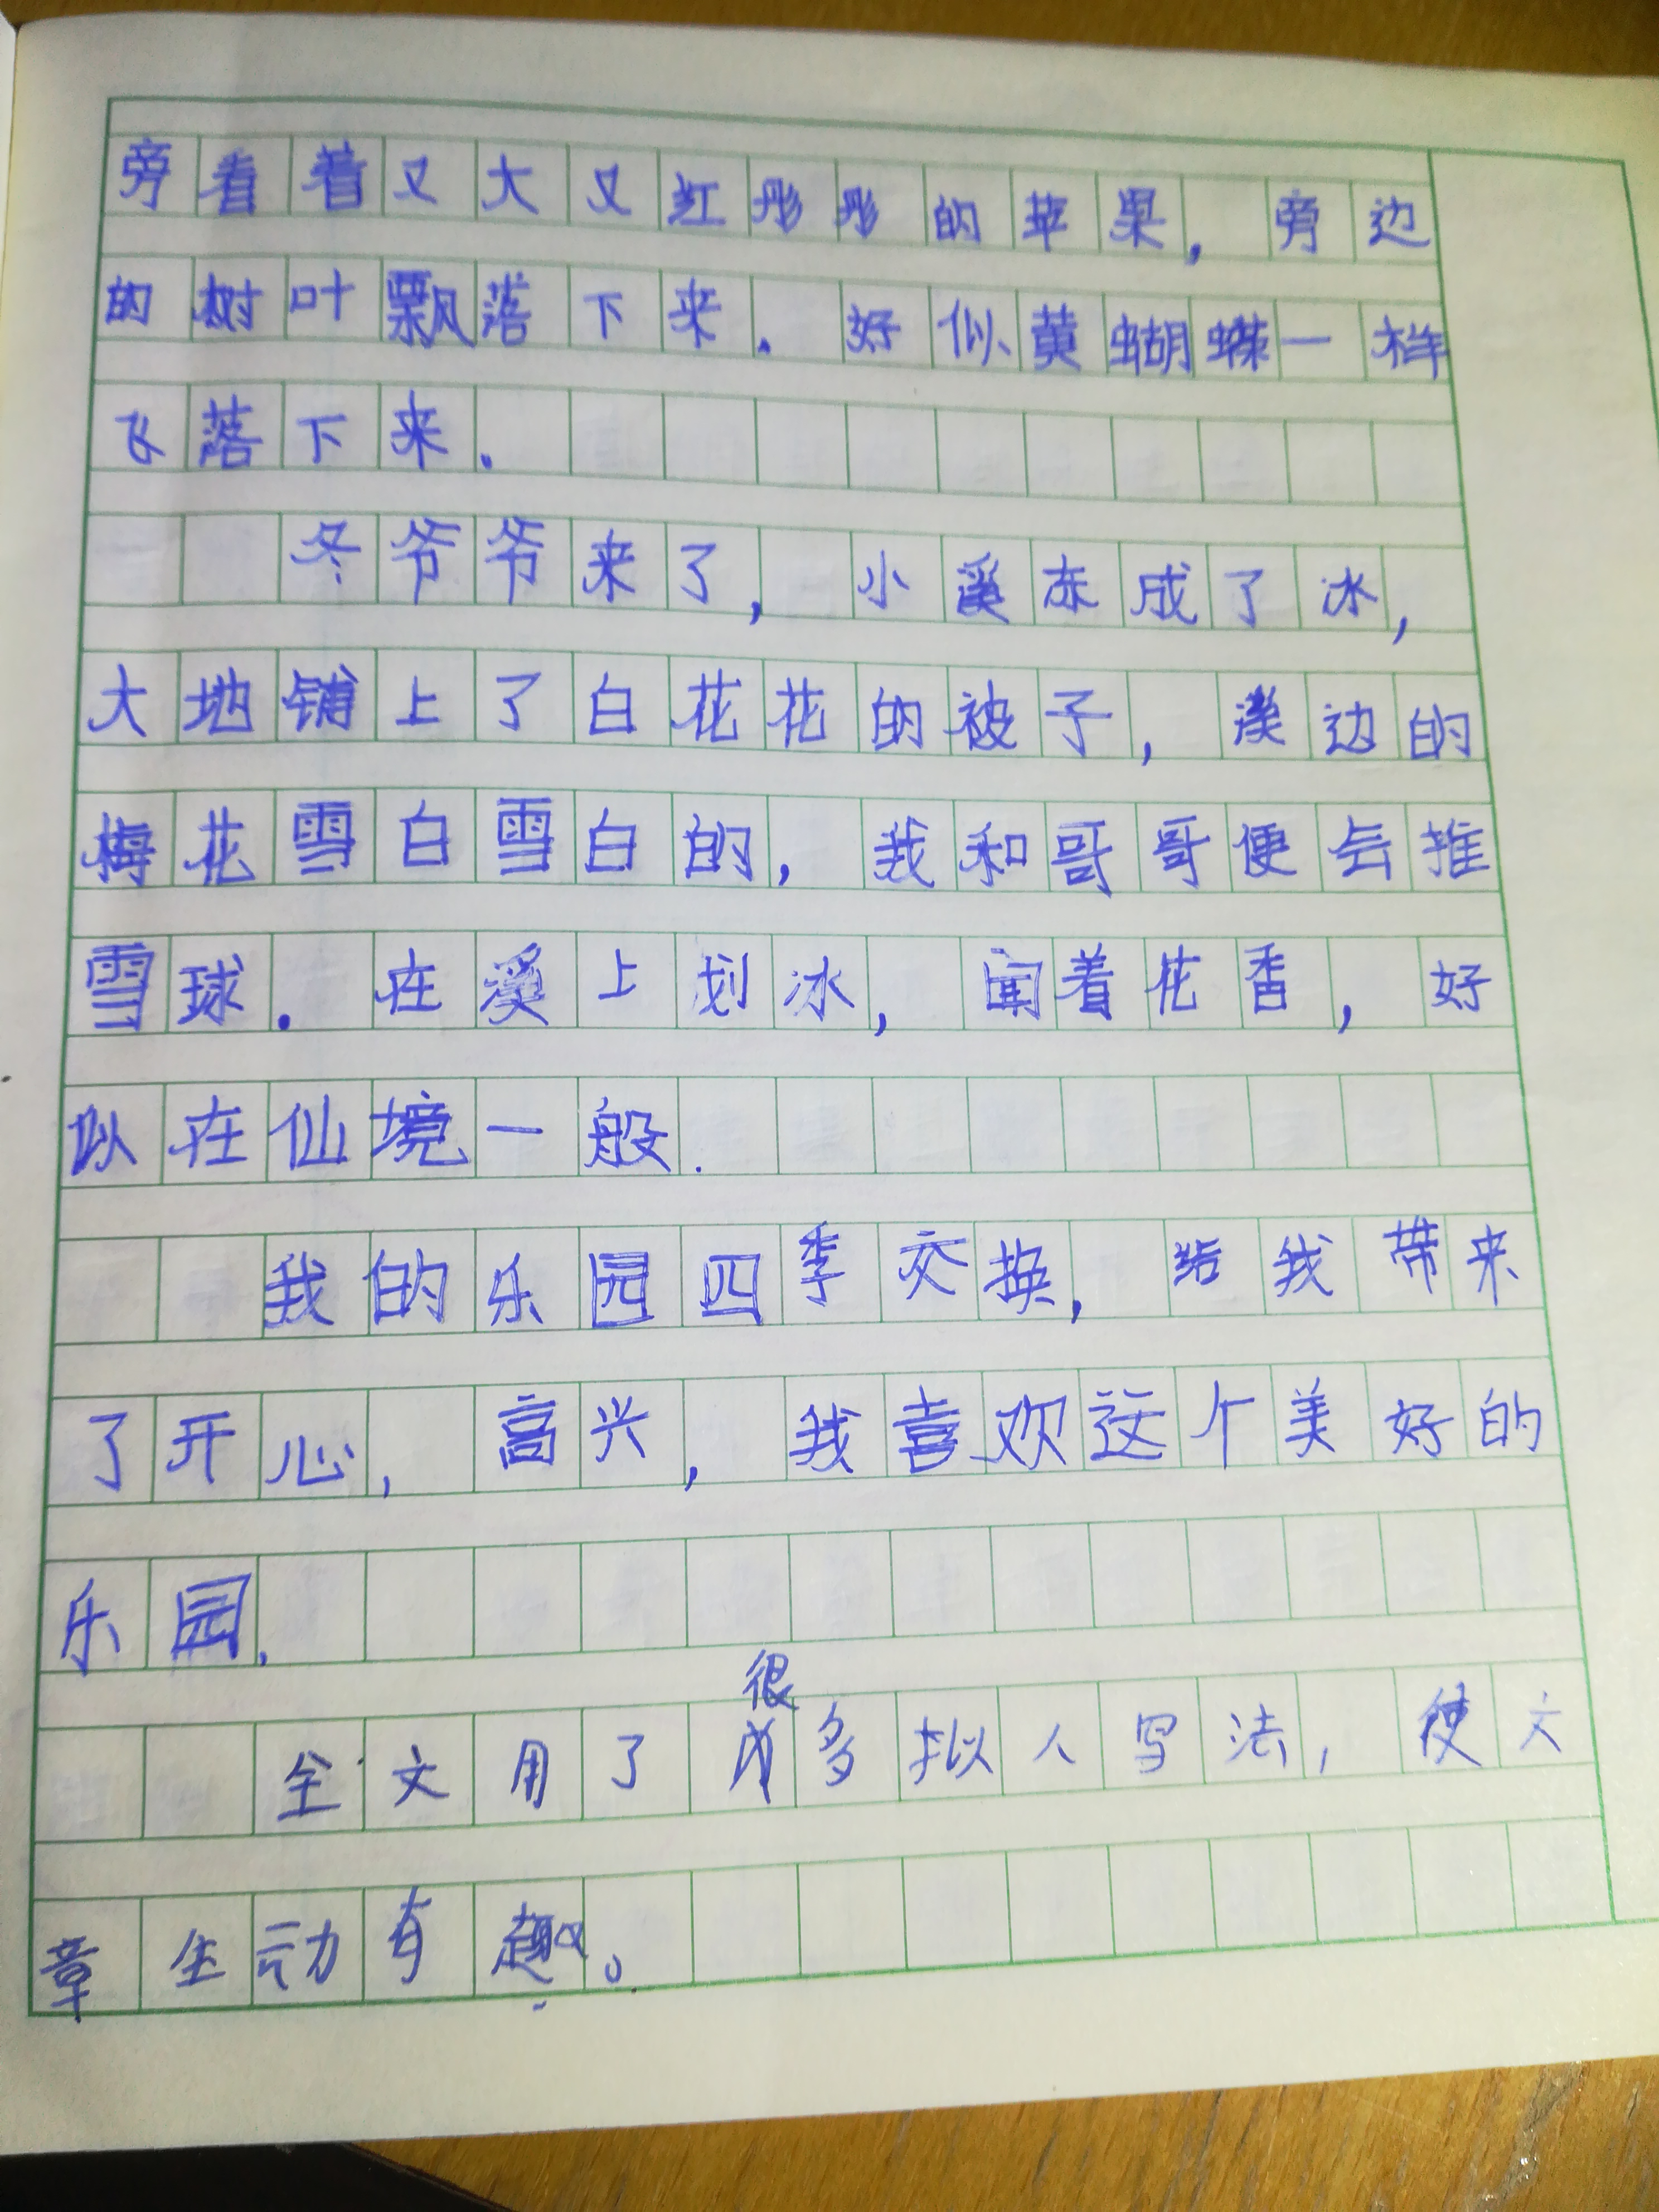 旁看着又大又红彤彤的苹果，旁边
的树叶飘落下来.好似黄蝴蝶一样
飞落下来.
冬爷爷来了，小溪冻成了冰，
大地铺上了白花花的被子，溪边的
梅花雪白雪白的，我和哥哥便去推
雪球.在溪上划冰，闻着花香，好
似在仙境一般.
我的乐园四季交换，给我带来
了开心，高兴，我喜欢这个美好的
乐园.
全文用了很多拟人写法，使文
章生动有趣。